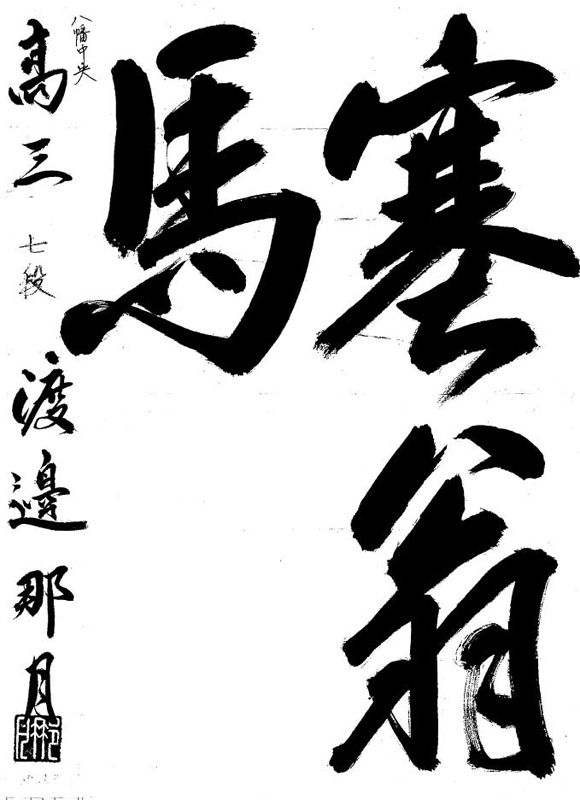 塞翁
馬
八幡中央
高三 七段 渡邊那月